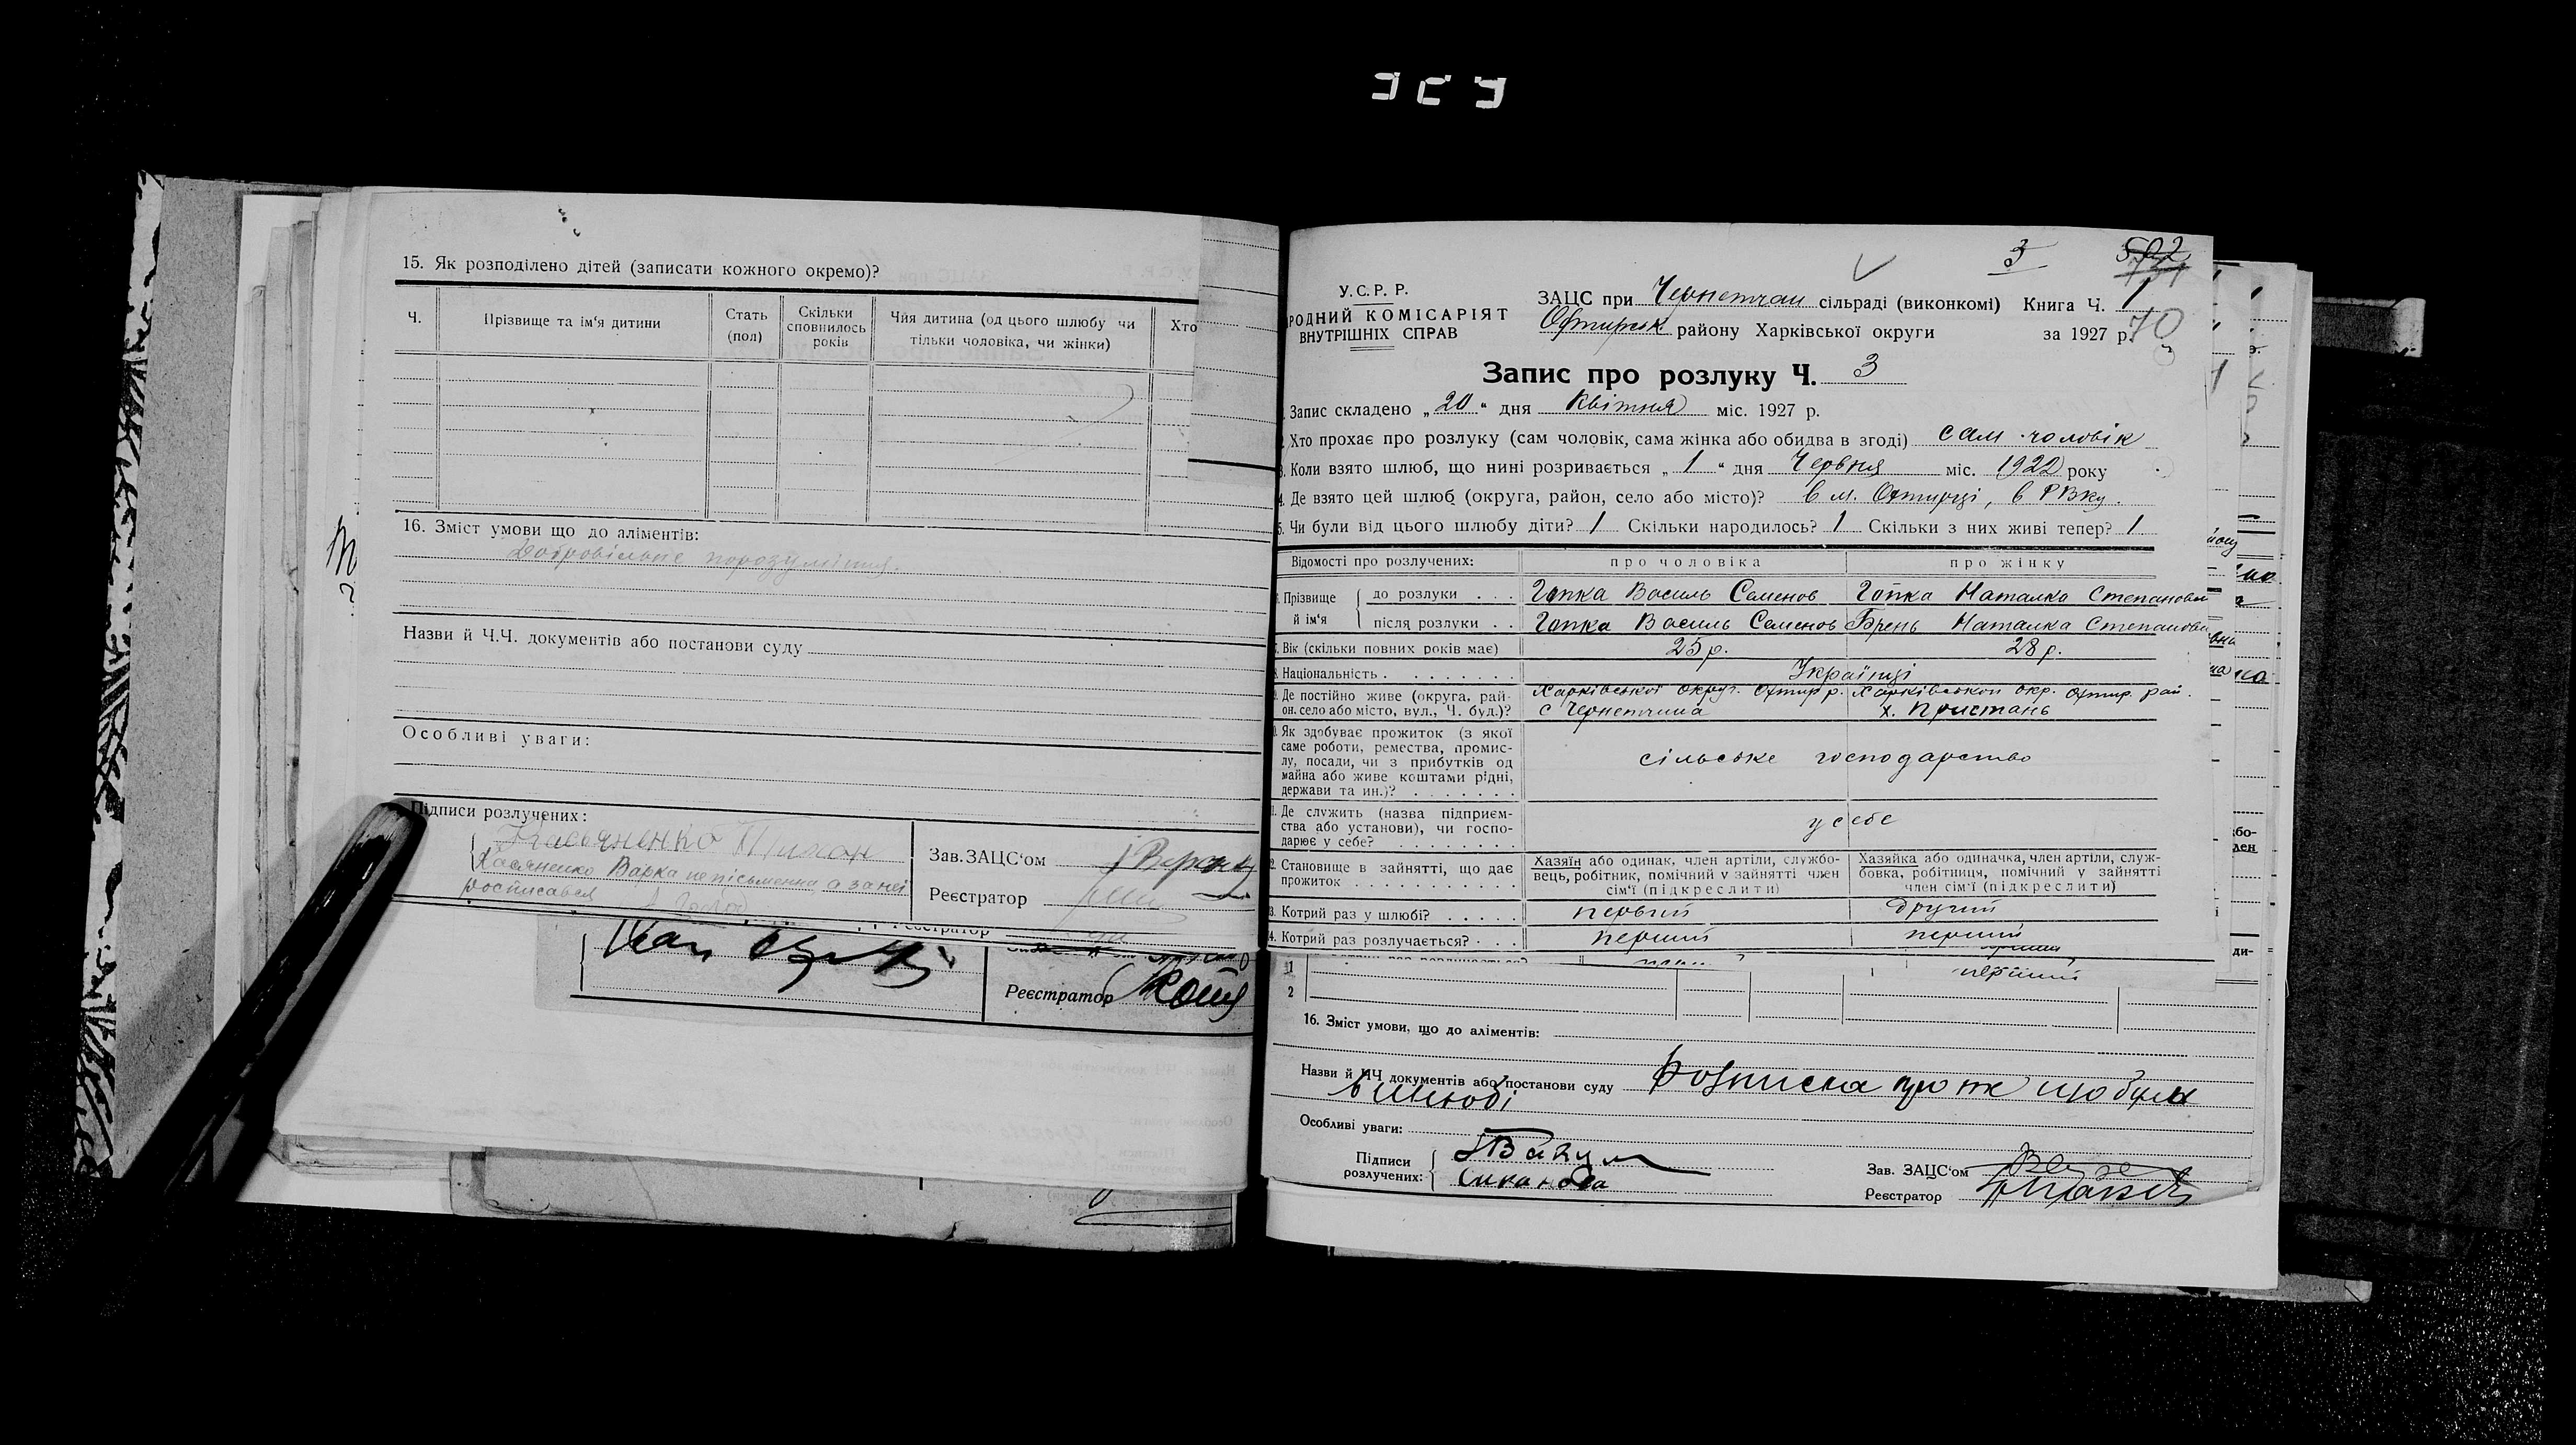 15. Як розподілено дітей (записати кожного окремо)?
Ч.
Прізвище та ім'я дитини
Стать (пол)
Скільки сповнилось років
Чия дитина (од цього шлюбу чи тільки чоловіка, чи жінки)
Хто
16. Зміст умови що до аліментів:
Добровільне порозуміння.
Назви й Ч.Ч. документів або постанови суду
Особливі уваги:
Підписи розлучених:
Касяненко Варка неписьменна, а за неї
росписався
Зав. ЗАЦС'ом
Реєстратор
Реєстратор
3
502
У.С.Р.Р.
РОДНИЙ КОМІСАРІЯТ
ВНУТРІШНІХ СПРАВ
ЗАЦС при Чернетчан сільраді (виконкомі) Книга Ч. 1
Охтирськ району Харківської округи за 1927 р.
70
Запис про розлуку Ч. 3
Запис складено „20" дня Квітня міс. 1927 р.
Хто прохає про розлуку (сам чоловік, сама жінка або обидва в згоді) сам чоловік
3. Коли взято шлюб, що нині розривається „1" дня Червня міс. 1922 року
4. Де взято цей шлюб (округа, район, село або місто)? в м. Охтирці, в РВКу.
5. Чи були від цього шлюбу діти? 1 Скільки народилось? 1 Скільки з них живі тепер? 1
Відомості про розлучених: про чоловіка про жінку
Прізвище й ім'я
до розлуки . . . Гапка Василь Семенов Гапка Наталка Степанов
після розлуки . . Гапка Василь Семенов Брень Наталка Степанов
Вік (скільки повних років має) 25 р. 28 р.
Національність . . . . . . . . Українці
Де постійно живе (округа, рай- Харківської округ. Охтир р. Харківської окр. Охтир. рай.
он. село або місто, вул., Ч. буд.)? с Чернетчина х. Пристань
Як здобуває прожиток (з якої
саме роботи, ремества, промис-
лу, посади, чи з прибутків од
майна або живе коштами рідні,
держави та ин.)? . . . . . . .
сільське господарство
Де служить (назва підприєм-
ства або установи), чи госпо-
дарює у себе? . . . . . . .
у себе
2. Становище в зайнятті, що дає
прожиток . . . . . . . . . .
Хазяїн або одинак, член артіли, службо-
вець, робітник, помічний у зайнятті член
сім'ї (підкреслити)
Хазяйка або одиначка, член артіли, служ-
бовка, робітниця, помічний у зайнятті
член сім'ї (підкреслити)
3. Котрий раз у шлюбі? . . . . . первий другий
4. Котрий раз розлучається? . . . перший перший
перший
1
2
16. Зміст умови, що до аліментів:
Назви й ЧЧ документів або постанови суду Росписка про те що були
в шлюбі
Особливі уваги:
Підписи
розлучених:
Зав. ЗАЦС'ом
Реєстратор